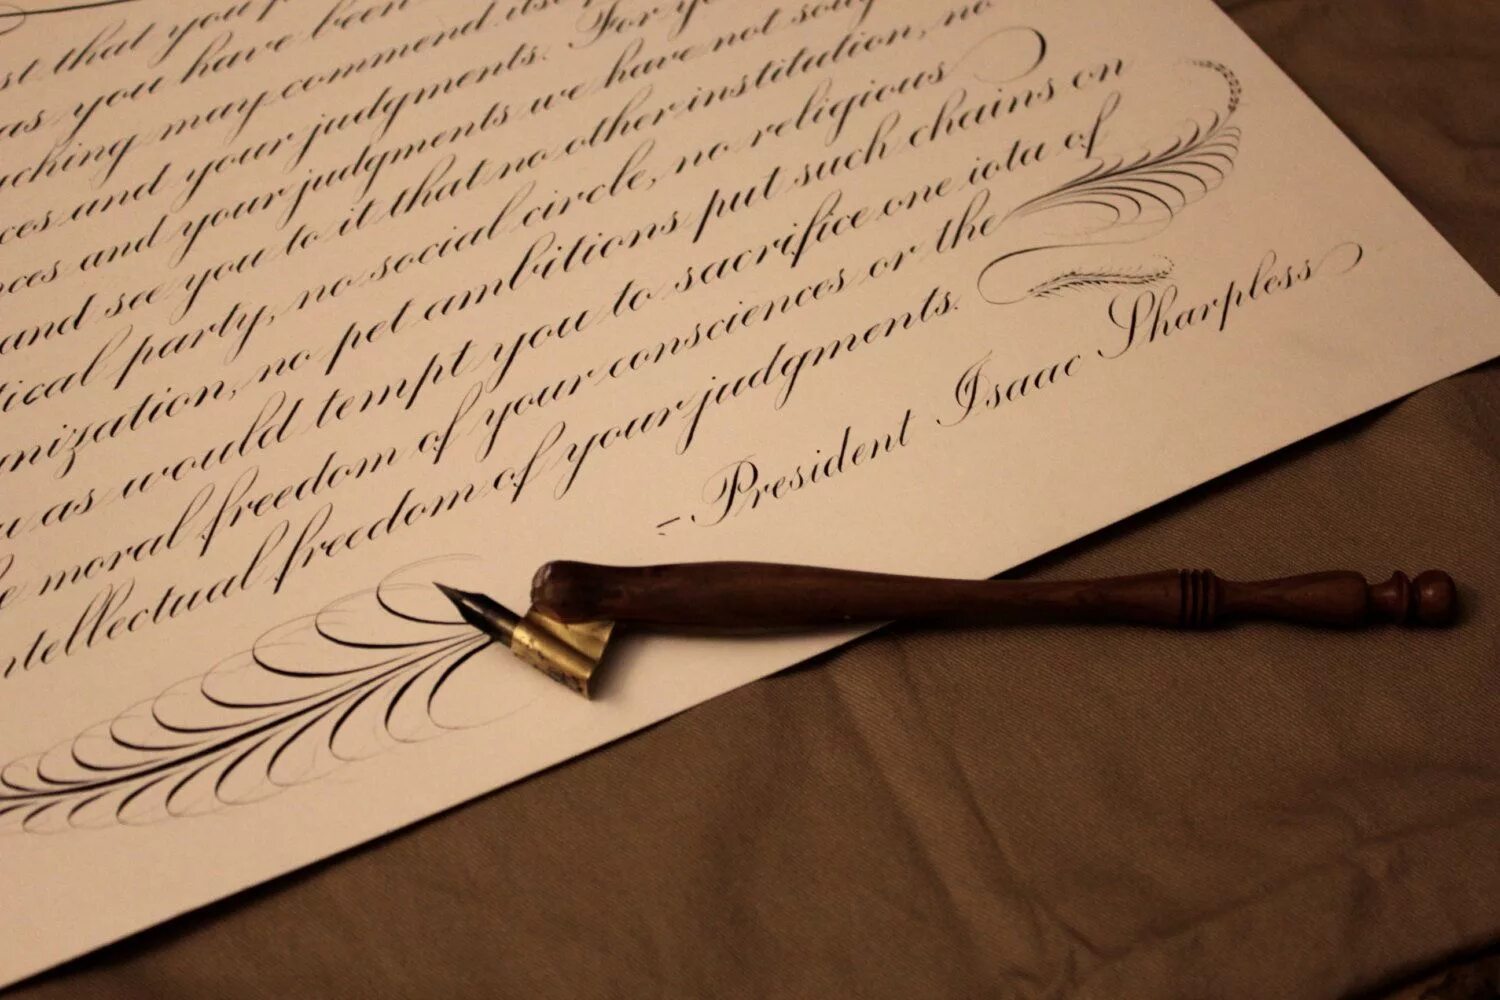 st that you
as you have been
ching may commend its
ces and your judgments. For yo
nces and your judgments we have not soug
and see you to it that no other institution, no
tical party, no social circle, no religious
nization, no pet ambitions put such chains on
u as would tempt you to sacrifice one iota of
e moral freedom of your consciences or the
ntellectual freedom of your judgments.
- President Isaac Sharpless